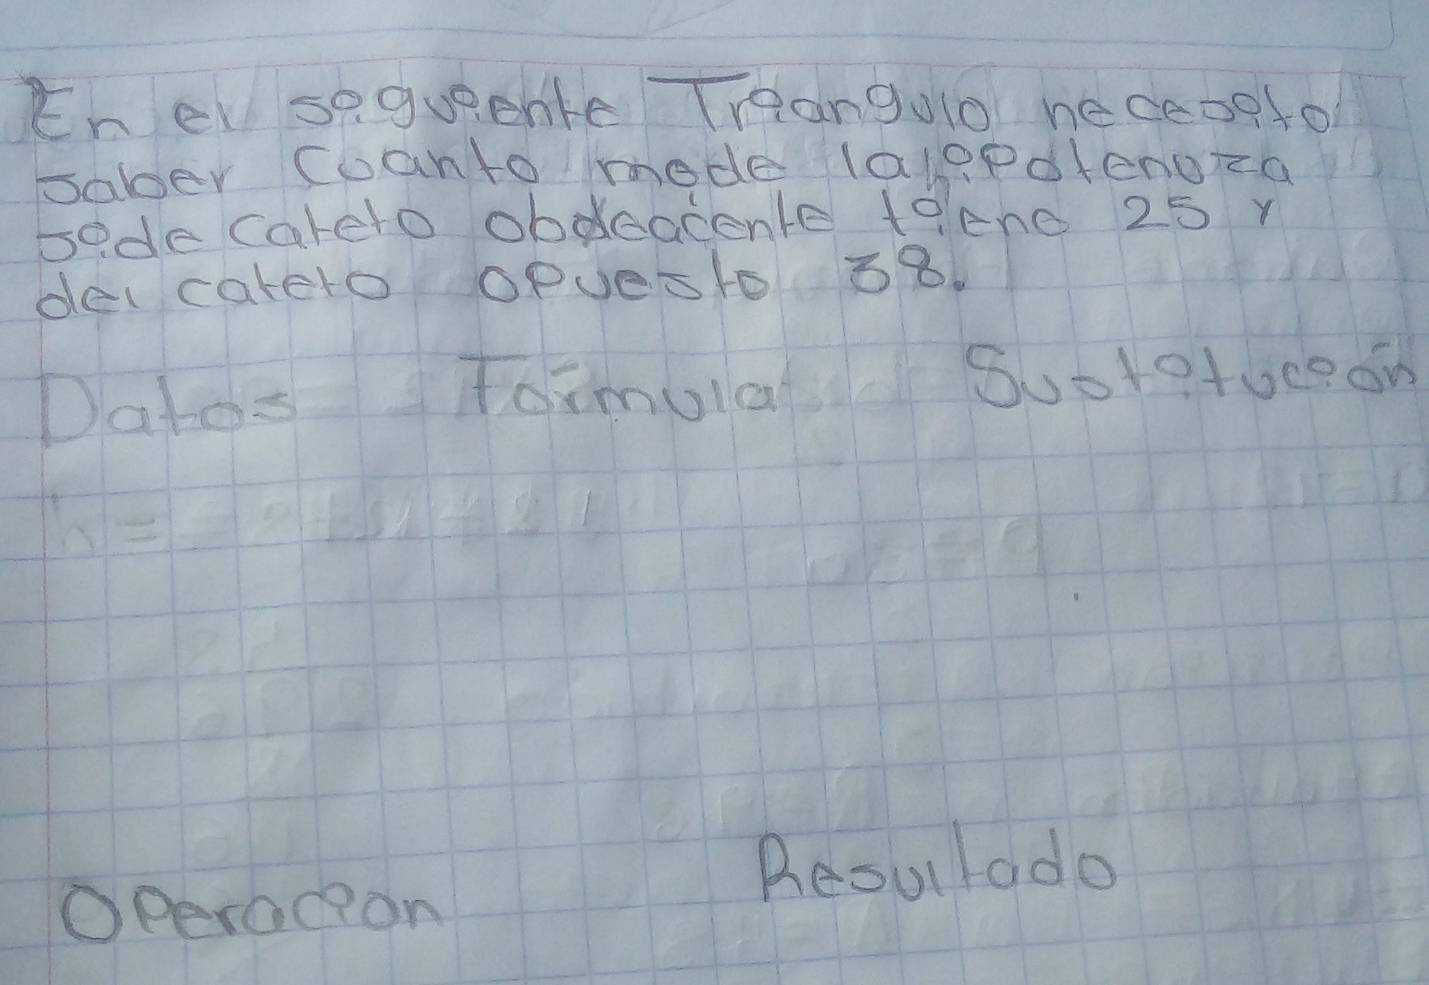 En el siguiente Triangulo necesito
saber Cuanto mide la ipotenuza
si de cateto obdeacente tiene 25 y
del cateto opuesto 38.
Datos Formula Sustitución
Operacion Resultado